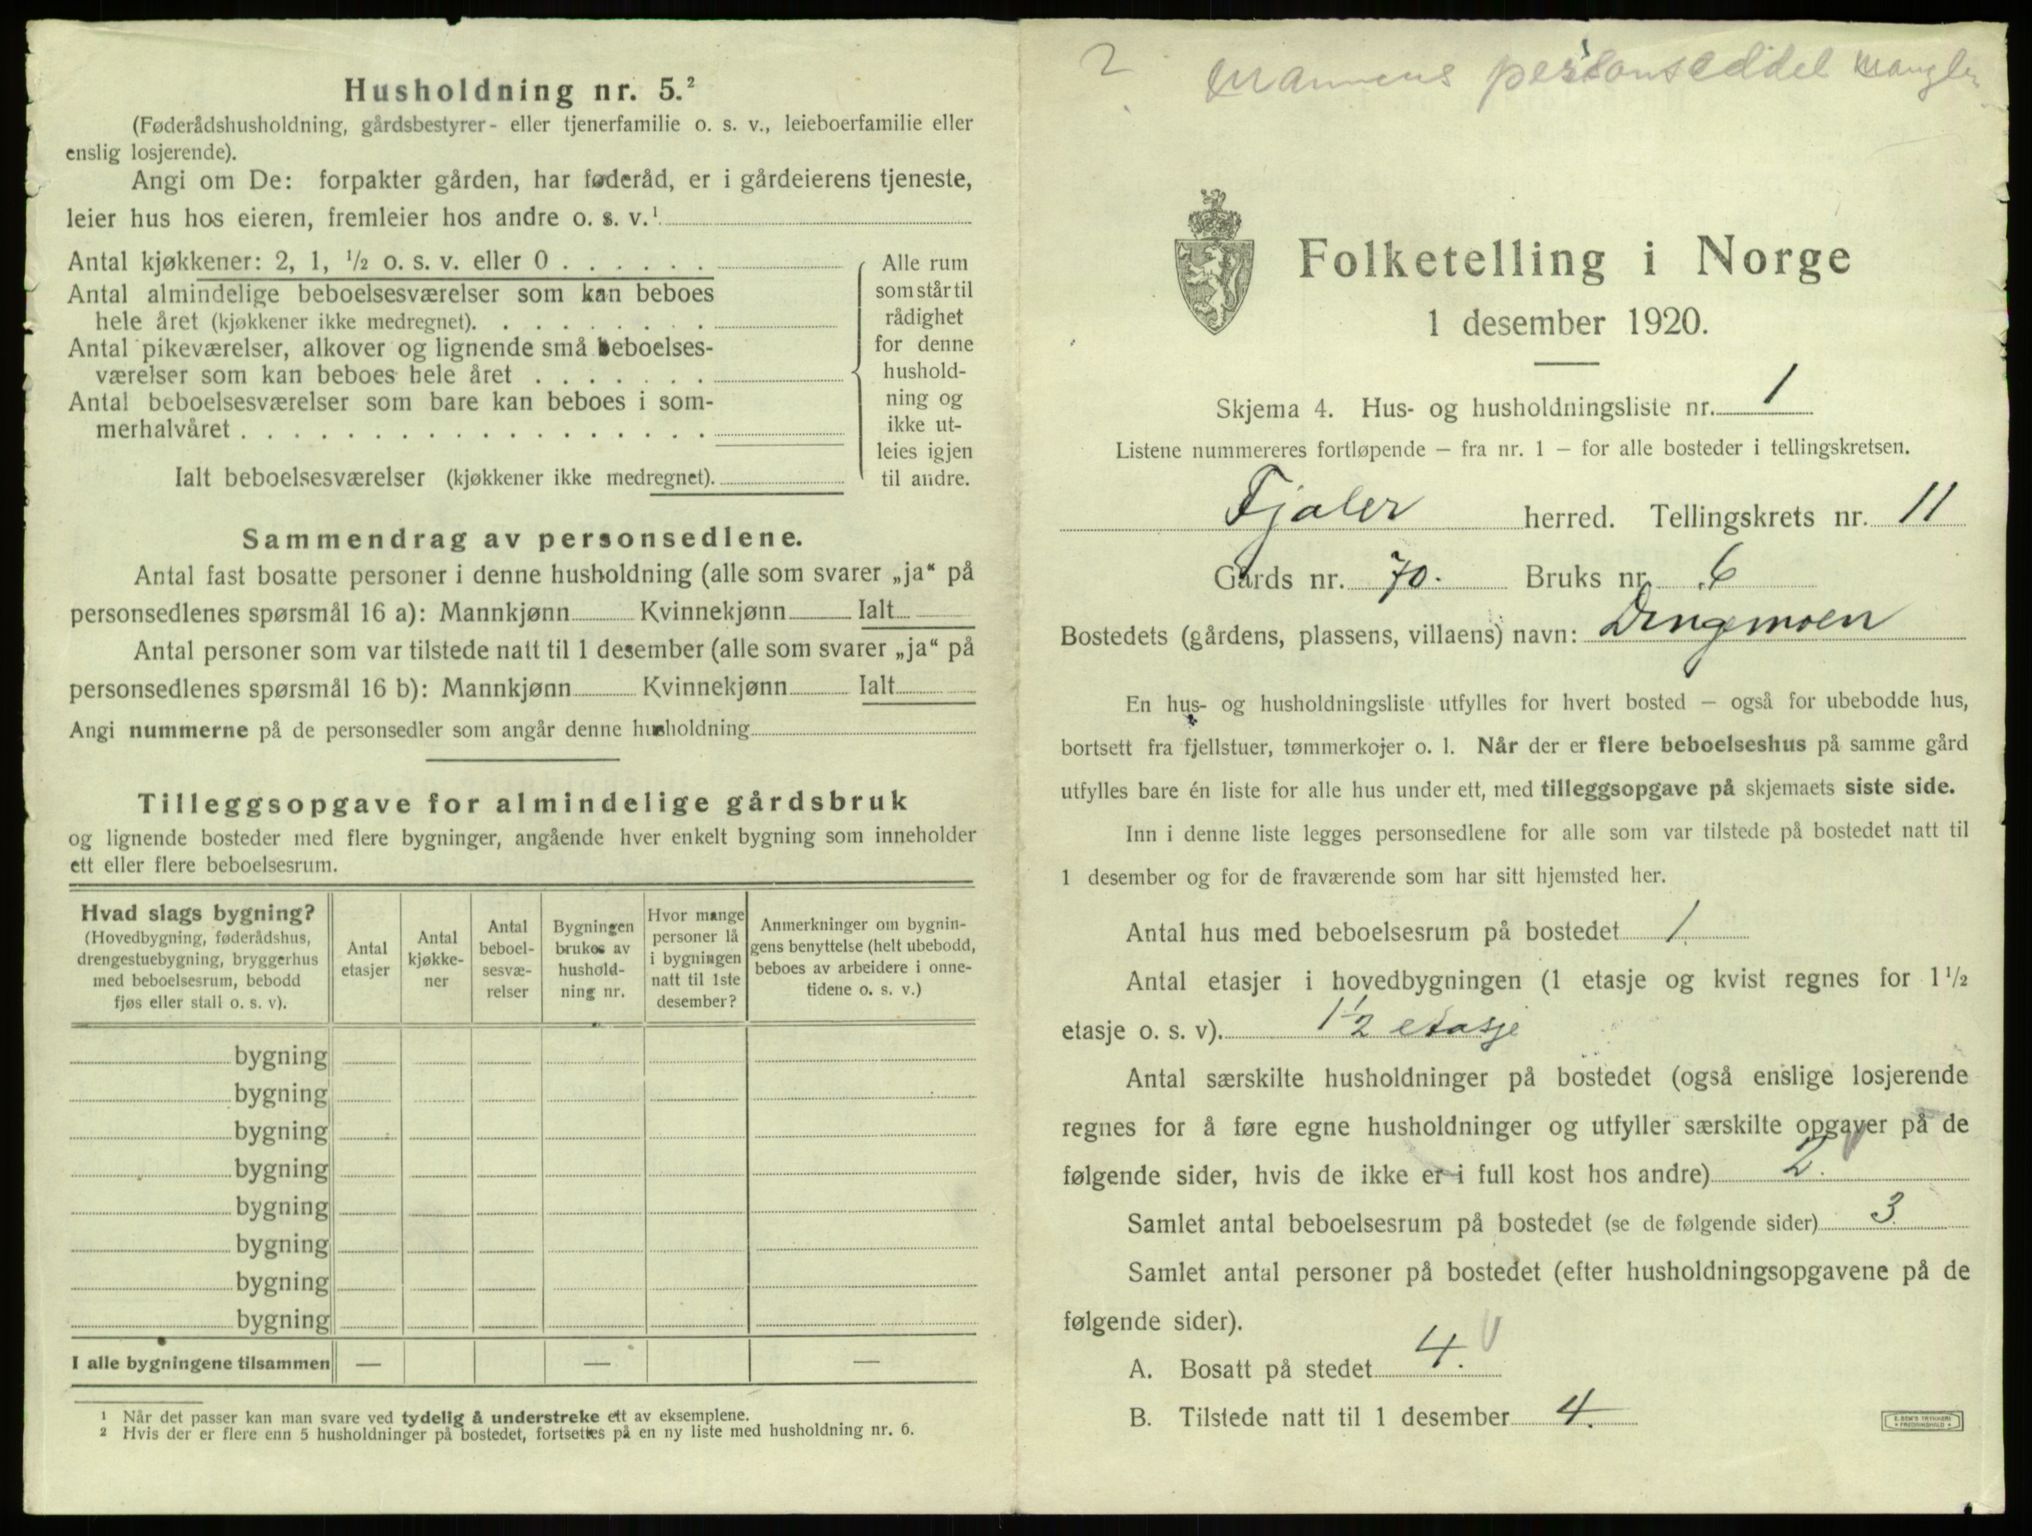 Husholdning nr. 5.²
(Føderådshusholdning, gårdsbestyrer- eller tjenerfamilie o. s. v., leieboerfamilie eller
enslig losjerende).
Angi om De: forpakter gården, har føderåd, er i gårdeierens tjeneste,
leier hus hos eieren, fremleier hos andre o. s. v.¹
Antal kjøkkener: 2, 1, ½ o. s. v. eller 0 . . . . . .
Antal almindelige beboelsesværelser som kan beboes
hele året (kjøkkener ikke medregnet). . . . . . . . .
Antal pikeværelser, alkover og lignende små beboelses-
værelser som kan beboes hele året . . . . . . .
Antal beboelsesværelser som bare kan beboes i som-
merhalvåret . . . . . . . . . . . . . . . . . .
Ialt beboelsesværelser (kjøkkener ikke medregnet).
Alle rum
som står til
rådighet
for denne
hushold-
ning og
ikke ut-
leies igjen
til andre.
Sammendrag av personsedlene.
Antal fast bosatte personer i denne husholdning (alle som svarer „ja“ på
personsedlenes spørsmål 16 a): Mannkjønn Kvinnekjønn Ialt
Antal personer som var tilstede natt til 1 desember (alle som svarer „ja“ på
personsedlenes spørsmål 16 b): Mannkjønn Kvinnekjønn Ialt
Angi nummerne på de personsedler som angår denne husholdning
Tilleggsopgave for almindelige gårdsbruk
og lignende bosteder med flere bygninger, angående hver enkelt bygning som inneholder
ett eller flere beboelsesrum.
Hvad slags bygning?
(Hovedbygning, føderådshus,
drengestuebygning, bryggerhus
med beboelsesrum, bebodd
fjøs eller stall o. s. v).
Antal
etasjer
Antal
kjøkke-
ner
Antal
beboel-
sesvæ-
relser
Bygningen
brukes av
hushold-
ning nr.
Hvor mange
personer lå
i bygningen
natt til 1ste
desember?
Anmerkninger om bygnin-
gens benyttelse (helt ubebodd,
beboes av arbeidere i onne-
tidene o. s. v.)
bygning
bygning
bygning
bygning
bygning
bygning
bygning
bygning
I alle bygningene tilsammen — — —
¹ Når det passer kan man svare ved tydelig å understreke ett av eksemplene.
² Hvis der er flere enn 5 husholdninger på bostedet, fortsettes på en ny liste med husholdning nr. 6.
2 Mannens personseddel mangler
Folketelling i Norge
1 desember 1920.
Skjema 4. Hus- og husholdningsliste nr. 1
Listene nummereres fortløpende — fra nr. 1 — for alle bosteder i tellingskretsen.
Fjaler herred. Tellingskrets nr. 11
Gårds nr. 70. Bruks nr. 6
Bostedets (gårdens, plassens, villaens) navn: Dingemoen
En hus- og husholdningsliste utfylles for hvert bosted — også for ubebodde hus,
bortsett fra fjellstuer, tømmerkojer o. l. Når der er flere beboelseshus på samme gård
utfylles bare én liste for alle hus under ett, med tilleggsopgave på skjemaets siste side.
Inn i denne liste legges personsedlene for alle som var tilstede på bostedet natt til
1 desember og for de fraværende som har sitt hjemsted her.
Antal hus med beboelsesrum på bostedet 1.
Antal etasjer i hovedbygningen (1 etasje og kvist regnes for 1½
etasje o. s. v). 1½ etasje
Antal særskilte husholdninger på bostedet (også enslige losjerende
regnes for å føre egne husholdninger og utfyller særskilte opgaver på de
følgende sider, hvis de ikke er i full kost hos andre) 2.
Samlet antal beboelsesrum på bostedet (se de følgende sider) 3.
Samlet antal personer på bostedet (efter husholdningsopgavene på de
følgende sider).
A. Bosatt på stedet 4.
B. Tilstede natt til 1 desember 4.